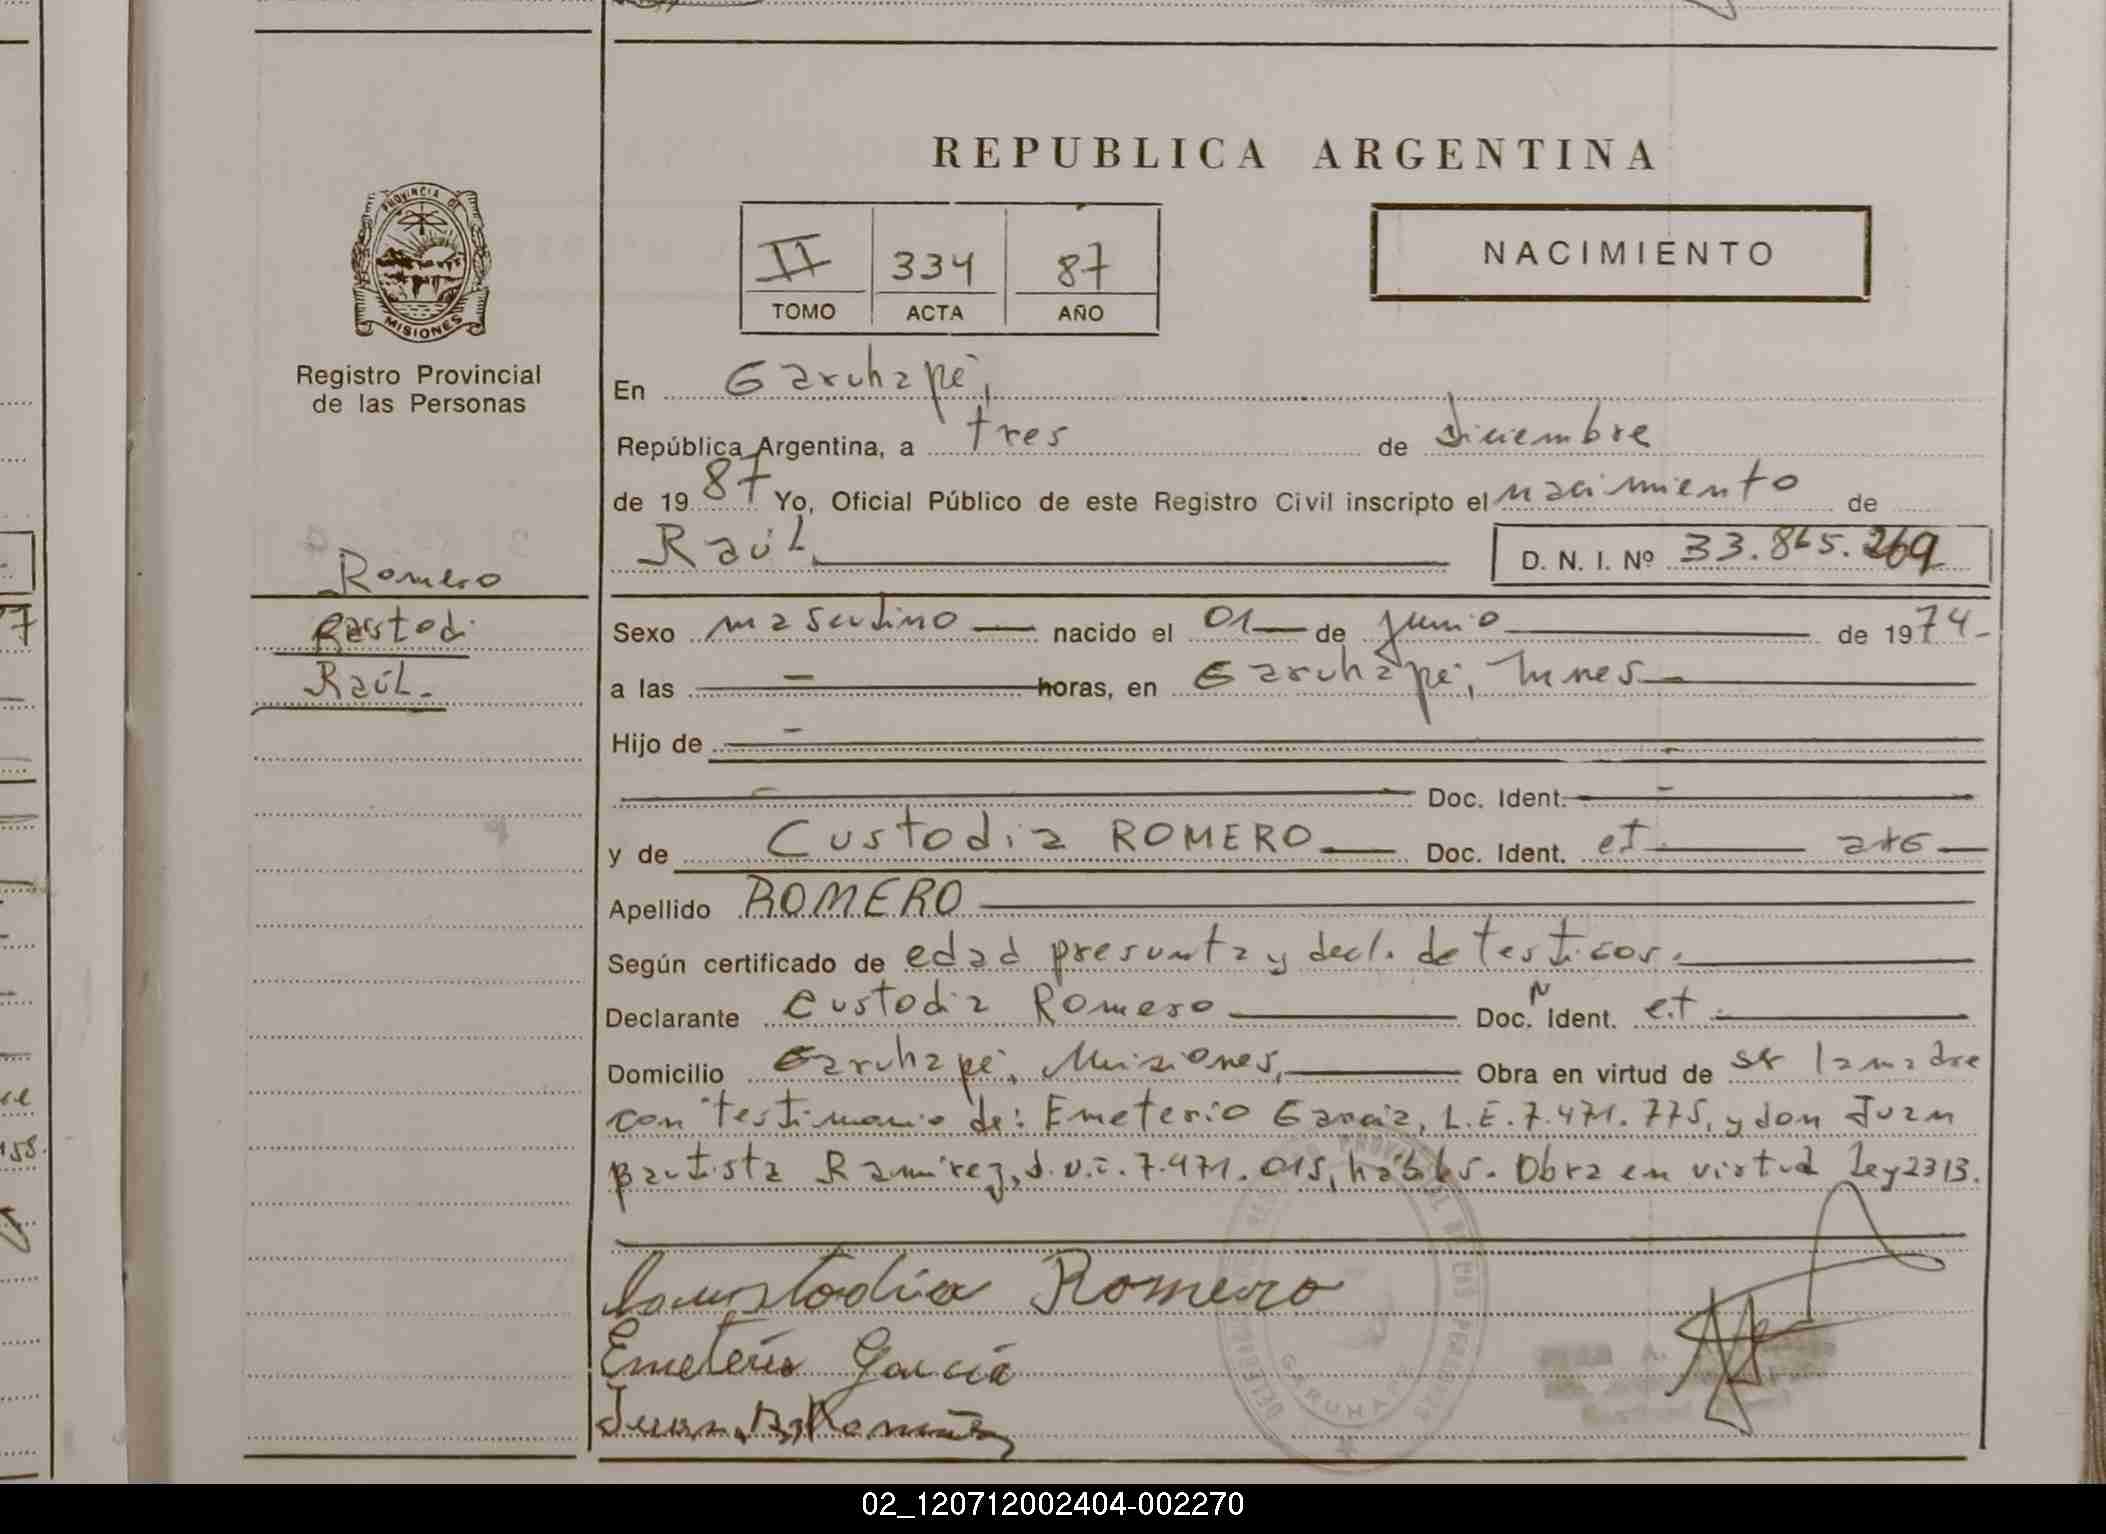 REPUBLICA ARGENTINA
PROVINCIA DE
MISIONES
Registro Provincial
de las Personas
II 334 87
TOMO ACTA AÑO
NACIMIENTO
En Garuhapé,
República Argentina, a tres de diciembre
de 1987 Yo, Oficial Público de este Registro Civil inscripto el nacimiento de
Raúl D. N. I. Nº 33.865.269
Romero
Raúl.
Sexo masculino nacido el 01 de junio de 1974
a las horas, en Garuhapé,
Hijo de
Doc. Ident.
y de Custodia ROMERO Doc. Ident. et
Apellido ROMERO
Según certificado de edad presunta y decl. de testigos.
Declarante Custodia Romero Doc. Ident. et.
Domicilio Garuhapé, Misiones, Obra en virtud de ser la madre
con testimonio de: Emeterio Garcia, L.E. 7.471.775, y don Juan
Bautista Ramirez, d.n.i. 7.471.015, hábiles. Obra en virtud Ley 2313.
Custodia Romero
Emeterio Garcia
Juan B. Ramirez
GARUHAPE
02_120712002404-002270